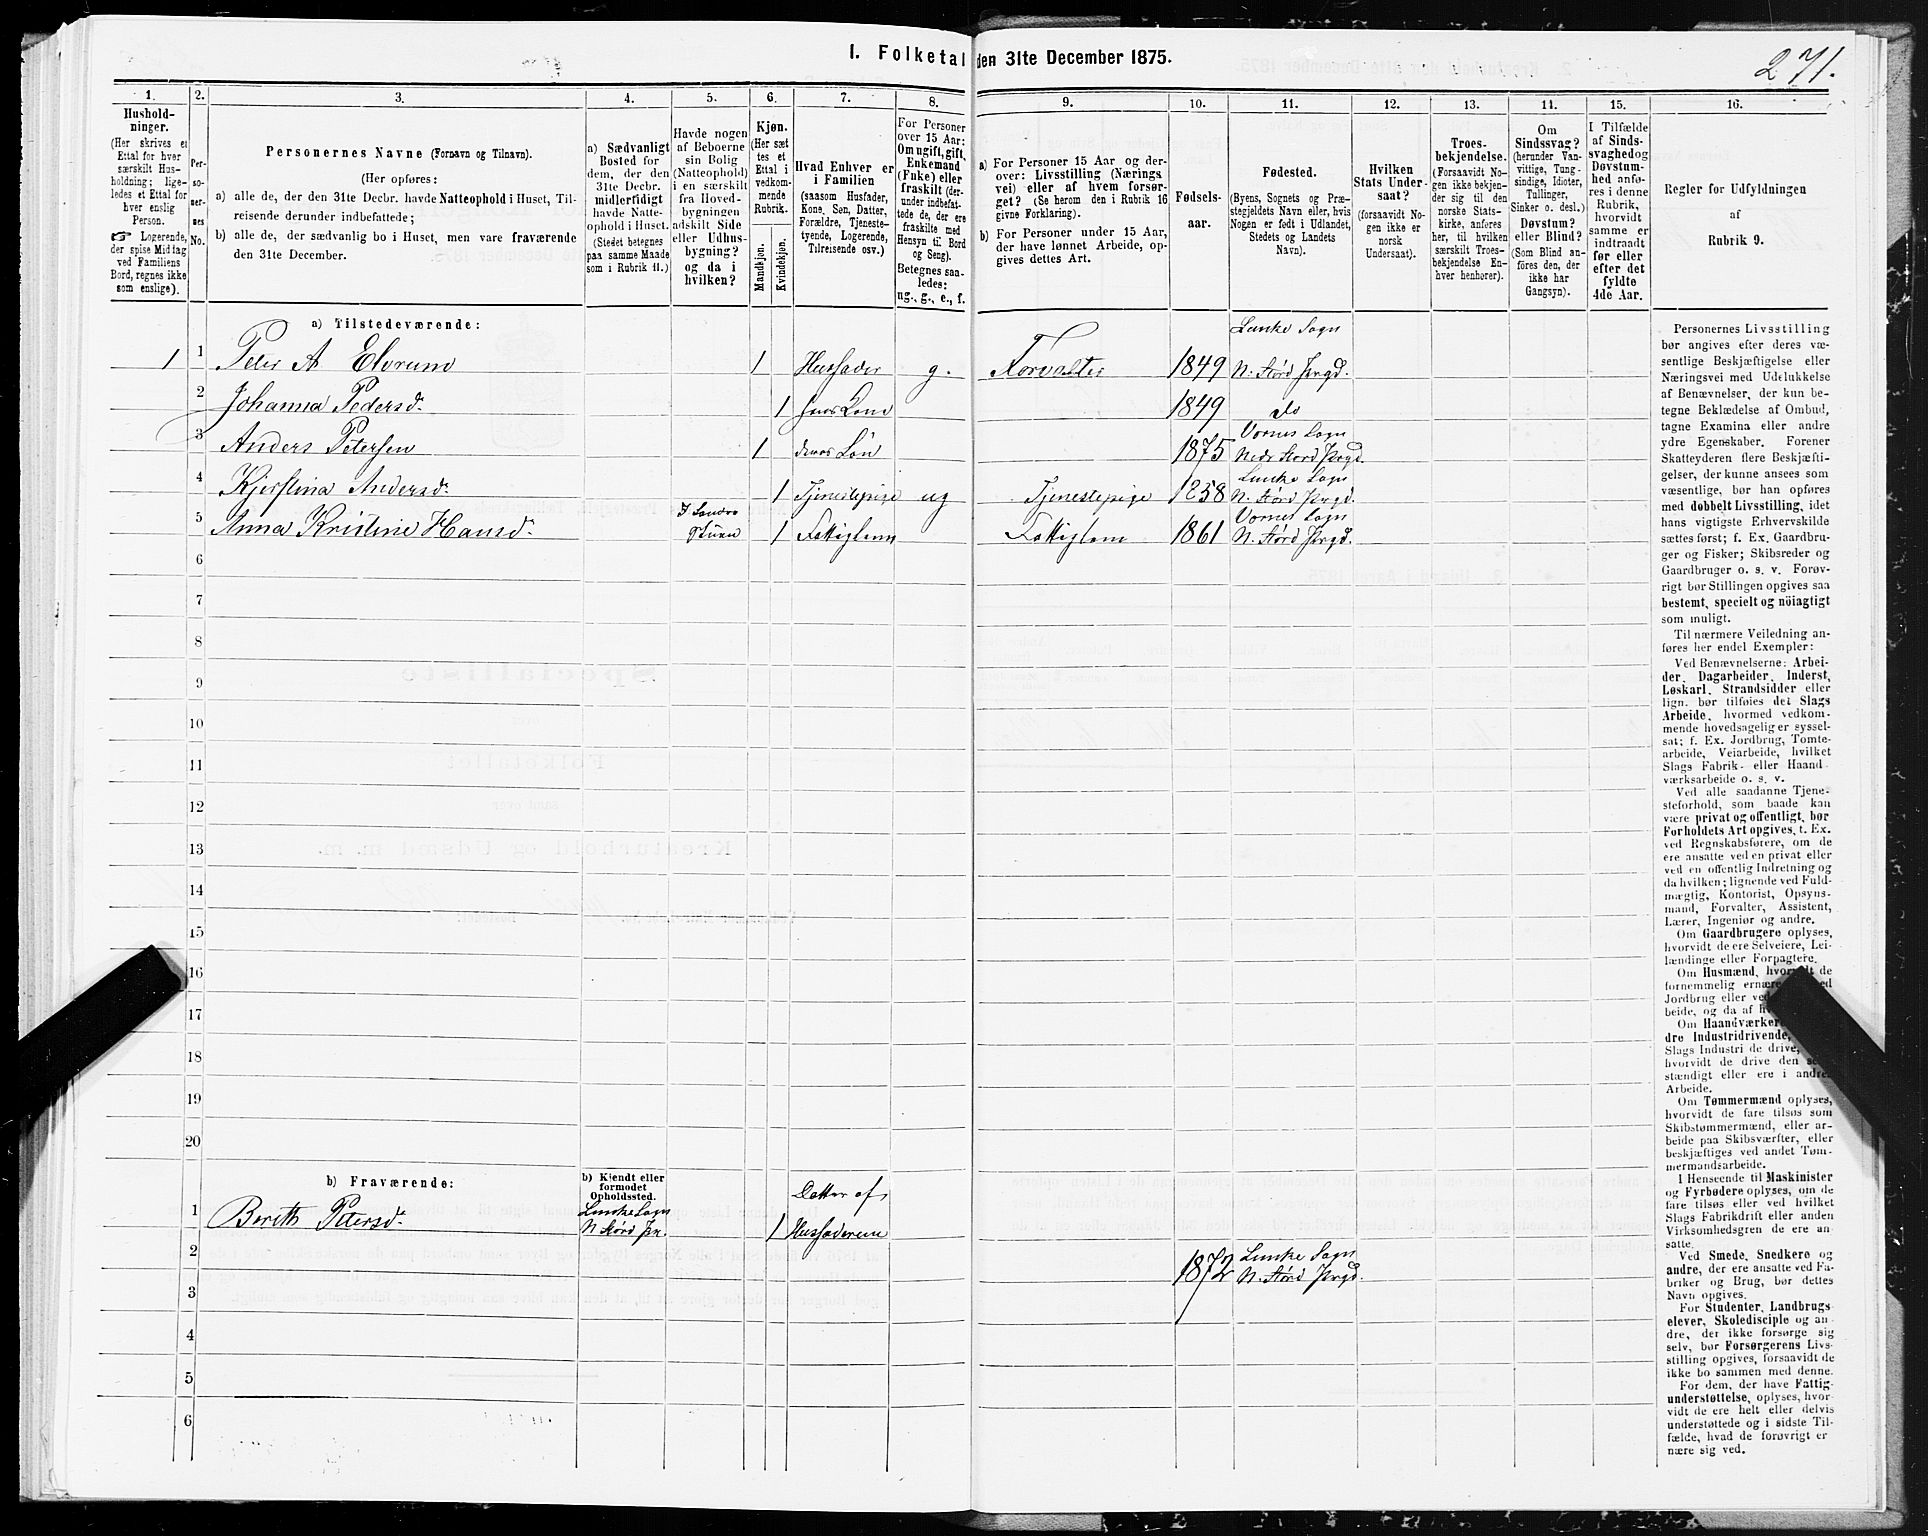 I. Folketal den 31te December 1875.
271.
1.
Hushold-
ninger.
(Her skrives et
Ettal for hver
særskilt Hus-
holdning; lige-
ledes et Ettal for
hver enslig
Person.
☞ Logerende,
der spise Middag
ved Familiens
Bord, regnes ikke
som enslige).
2.
Per-
so-
ner-
nes
No.
3.
Personernes Navne (Fornavn og Tilnavn).
(Her opføres:
a) alle de, der den 31te Decbr. havde Natteophold i Huset, Til-
reisende derunder indbefattede;
b) alle de, der sædvanlig bo i Huset, men vare fraværende
den 31te December.
4.
a) Sædvanligt
Bosted for
dem, der den
31te Decbr.
midlertidigt
havde Natte-
ophold i Huset.
(Stedet betegnes
paa samme Maade
som i Rubrik 11.)
5.
Havde nogen
af Beboerne
sin Bolig
(Natteophold)
i en særskilt
fra Hoved-
bygningen
adskilt Side
eller Udhus-
bygning?
og da i
hvilken?
6.
Kjøn.
(Her sæt-
tes et
Ettal i
vedkom-
mende
Rubrik.
Mandkjøn.
Kvindekjøn.
7.
Hvad Enhver er
i Familien
(saasom Husfader,
Kone, Søn, Datter,
Forældre, Tjeneste-
tyende, Logerende,
Tilreisende osv.)
8.
For Personer
over 15 Aar:
Om ugift, gift,
Enkemand
(Enke) eller
fraskilt (der-
under indbefat-
tede de, der ere
fraskilte med
Hensyn til Bord
og Seng).
Betegnes saa-
ledes:
ug., g., e., f.
9.
a) For Personer 15 Aar og der-
over: Livsstilling (Nærings-
vei) eller af hvem forsør-
get? (Se herom den i Rubrik 16
givne Forklaring).
b) For Personer under 15 Aar,
der have lønnet Arbeide, op-
gives dettes Art.
10.
Fødsels-
aar.
11.
Fødested.
(Byens, Sognets og Præ-
stegjeldets Navn eller, hvis
Nogen er født i Udlandet,
Stedets og Landets
Navn).
12.
Hvilken
Stats Under-
saat?
(forsaavidt No-
gen ikke er
norsk
Undersaat).
13.
Troes-
bekjendelse.
(Forsaavidt No-
gen ikke bekjen-
der sig til den
norske Stats-
kirke, anføres
her, til hvilken
særskilt Troes-
bekjendelse En-
hver henhører).
14.
Om
Sindssvag?
(herunder Van-
vittige, Tung-
sindige, Idioter,
Tullinger,
Sinker o. desl.)
Døvstum?
eller Blind?
(Som Blind an-
føres den, der
ikke har
Gangsyn).
15.
I Tilfælde
af Sinds-
svaghed og
Døvstum-
hed anfø-
res i denne
Rubrik,
hvorvidt
samme er
indtraadt
før eller
efter det
fyldte
4de Aar.
16.
Regler for Udfyldningen
af
Rubrik 9.
a) Tilstedeværende:
1 1 Peter A Elvrum 1 Husfader g. Forvalter 1849 Lunke Sogn N. Størd Prgd.
2 Johanna Pedersd. 1 hans Kone 1849 do
3 Anders Petersen 1 deres Søn 1875 Vornes Sogn Nedr Stord Prgd.
4 Kjerstina Andersd. 1 Tjenestepige ug Tjenestepige 1858 Lunke Sogn N. Størd Prgd.
5 Anna Kristine Hansd. 1 Fattiglem Fattiglem 1861 Vornes Sogn N. Størd Prgd.
6
7
8
9
10
11
12
13
14
15
16
17
18
19
20
b) Fraværende:
b) Kjendt eller
formodet
Opholdssted.
1 Berith Petersd. Lunke Sogn N. Størd Pr. 1 Datter af Husfaderen 1872 Lunke Sogn N. Størd Prgd.
2
3
4
5
6
Personernes Livsstilling
bør angives efter deres væ-
sentlige Beskjæftigelse eller
Næringsvei med Udelukkelse
af Benævnelser, der kun be-
tegne Beklædelse af Ombud,
tagne Examina eller andre
ydre Egenskaber. Forener
Skatteyderen flere Beskjæfti-
gelser, der kunne ansees som
væsentlige, bør han opføres
med dobbelt Livsstilling, idet
hans vigtigste Erhvervskilde
sættes først; f. Ex. Gaardbru-
ger og Fisker; Skibsreder og
Gaardbruger o. s. v. Forøv-
rigt bør Stillingen opgives saa
bestemt, specielt og nöiagtigt
som muligt.
Til nærmere Veiledning an-
føres her endel Exempler:
Ved Benævnelserne: Arbei-
der, Dagarbeider, Inderst,
Løskarl, Strandsidder eller
lign. bør tilføies det Slags
Arbeide, hvormed vedkom-
mende hovedsagelig er syssel-
sat; f. Ex. Jordbrug, Tomte-
arbeide, Veiarbeide, hvilket
Slags Fabrik- eller Haand-
værksarbeide o. s. v.
Ved alle saadanne Tjene-
steforhold, som baade kan
være privat og offentligt, bør
Forholdets Art opgives, t. Ex.
ved Regnskabsførere, om de
ere ansatte ved en privat eller
ved en offentlig Indretning og
da hvilken; lignende ved Fuld-
mægtig, Kontorist, Opsyns-
mand, Forvalter, Assistent,
Lærer, Ingeniør og andre.
Om Gaardbrugere oplyses,
hvorvidt de ere Selveiere, Lei-
lændinge eller Forpagtere.
Om Husmænd, de
fornemmelig
Jordbrug eller
beide, og da af
Om Haandværkere
dre Industridrivende,
Slags Industri de drive,
hvorvidt de drive den
stændigt eller ere i andres
Arbeide.
Om Tømmermænd oplyses,
hvorvidt de fare tilsøs som
Skibstømmermænd, eller ar-
beide paa Skibsværfter, eller
beskjæftiges ved andet Tøm-
mermandsarbeide.
I Henseende til Maskinister
og Fyrbødere oplyses, om de
fare tilsøs eller ved hvilket
Slags Fabrikdrift eller anden
Virksomhedsgren de ere an-
satte.
Ved Smede, Snedkere og
andre, der ere ansatte ved Fa-
briker og Brug, bør dettes
Navn opgives.
For Studenter, Landbrugs-
elever, Skoledisciple og an-
dre, der ikke forsørge sig
selv, bør Forsørgerens Livs-
stilling opgives, forsaavidt de
ikke bo sammen med denne.
For dem, der have Fattig-
understøttelse, oplyses, hvor-
vidt de ere helt eller delvis
understøttede og i sidste Til-
fælde, hvad de forøvrigt er-
nære sig ved.